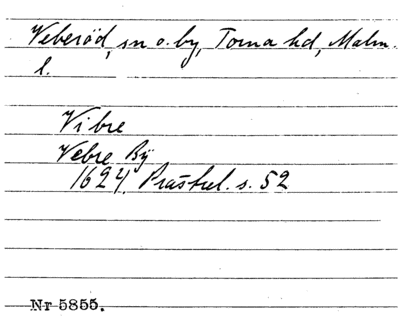 Veberöd, sn o. by, Torna hd, Malm.
l.
Vibre
Vebre Bÿ
1624, Prästrel. s. 52
Nr 5855.